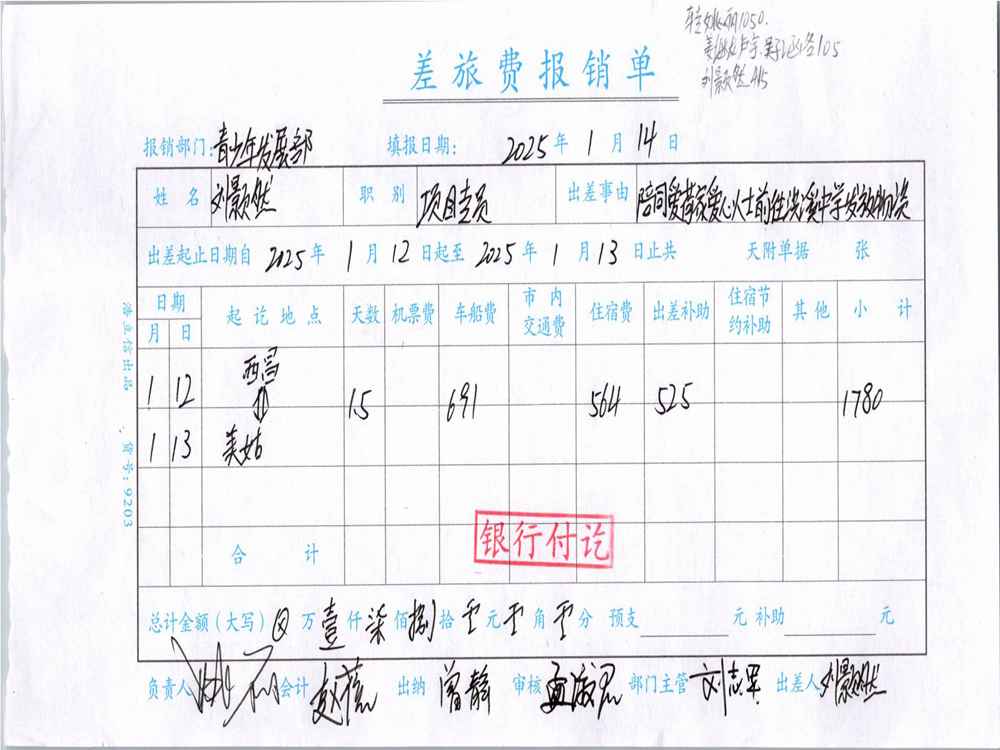 差旅费报销单
报销部门:青少年发展部 填报日期: 2025年1月14日
姓名 刘颢然 职别 项目专员 出差事由 陪同爱慕爱心人士前往洪溪中学发放物资
出差起止日期自2025年1月12日起至2025年1月13日止共 天附单据 张
日期 起讫地点 天数 机票费 车船费 市内交通费 住宿费 出差补助 住宿节约补助 其他 小计
月 日
1 12 西昌
1.5 691 564 525 1780
1 13 美姑
合计
银行付讫
总计金额(大写)⊗万壹仟柒佰捌拾零元零角零分 预支 元 补助 元
负责人 会计 出纳 曾静 审核 部门主管 刘志军 出差人 刘颢然
浩立信出品 货号:9203